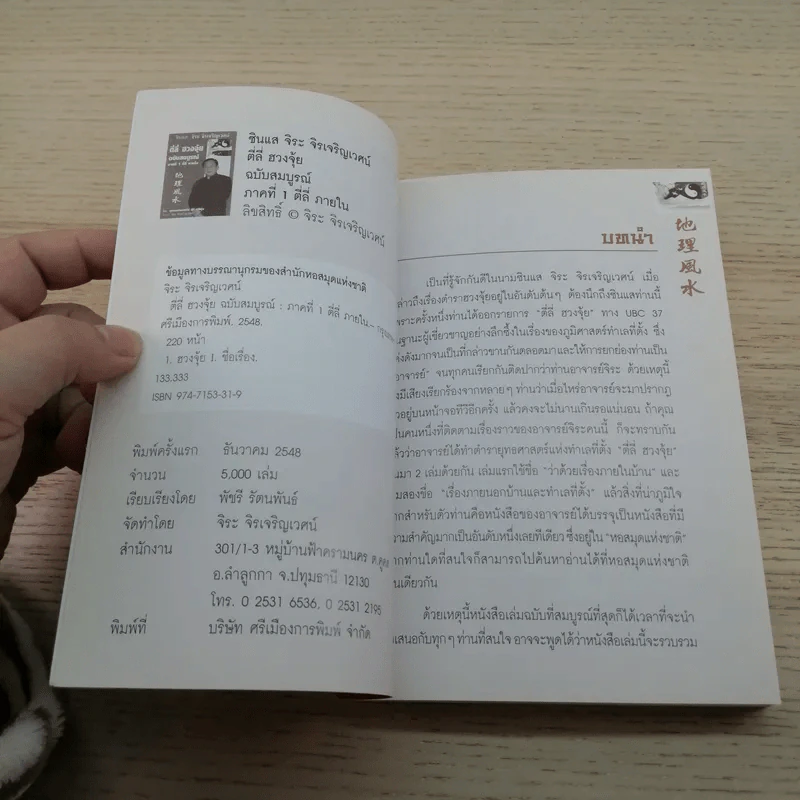 ซินแส จิระ จิรเจริญเวศน์
ตี่ลี่ ฮวงจุ้ย
ฉบับสมบูรณ์
ภาคที่ 1 ตี่ลี่ ภายใน
ลิขสิทธิ์ © จิระ จิรเจริญเวศน์
ตี่ลี่ ฮวงจุ้ย
ฉบับสมบูรณ์
地理風水
ข้อมูลทางบรรณานุกรมของสำนักหอสมุดแห่งชาติ
จิระ จิรเจริญเวศน์
ตี่ลี่ ฮวงจุ้ย ฉบับสมบูรณ์ : ภาคที่ 1 ตี่ลี่ ภายใน.--
ศรีเมืองการพิมพ์, 2548.
220 หน้า
1. ฮวงจุ้ย I. ชื่อเรื่อง.
133.333
ISBN 974-7153-31-9
พิมพ์ครั้งแรก ธันวาคม 2548
จำนวน 5,000 เล่ม
เรียบเรียงโดย พัชรี รัตนพันธ์
จัดทำโดย จิระ จิรเจริญเวศน์
สำนักงาน 301/1-3 หมู่บ้านฟ้าครามนคร
อ.ลำลูกกา จ.ปทุมธานี 12130
โทร. 0 2531 6536, 0 2531 2195
พิมพ์ที่ บริษัท ศรีเมืองการพิมพ์ จำกัด
地理風水
บทนำ
เป็นที่รู้จักกันดีในนามซินแส จิระ จิรเจริญเวศน์ เมื่อ
กล่าวถึงเรื่องตำราฮวงจุ้ยอยู่ในอันดับต้นๆ ต้องนึกถึงซินแสท่านนี้
เพราะครั้งหนึ่งท่านได้ออกรายการ "ตี่ลี่ ฮวงจุ้ย" ทาง UBC 37
ฐานะผู้เชี่ยวชาญอย่างลึกซึ้งในเรื่องของภูมิศาสตร์ทำเลที่ตั้ง ซึ่ง
ดังมากจนเป็นที่กล่าวขานกันตลอดมาและให้การยกย่องท่านเป็น
อาจารย์" จนทุกคนเรียกกันติดปากว่าท่านอาจารย์จิระ ด้วยเหตุนี้
มีเสียงเรียกร้องจากหลายๆ ท่านว่าเมื่อไหร่อาจารย์จะมาปรากฏ
อยู่บนหน้าจอทีวีอีกครั้ง แล้วคงจะไม่นานเกินรอแน่นอน ถ้าคุณ
เป็นคนหนึ่งที่ติดตามเรื่องราวของอาจารย์จิระคนนี้ ก็จะทราบกัน
แล้วว่าอาจารย์ได้ทำตำรายุทธศาสตร์แห่งทำเลที่ตั้ง "ตี่ลี่ ฮวงจุ้ย"
มา 2 เล่มด้วยกัน เล่มแรกใช้ชื่อ "ว่าด้วยเรื่องภายในบ้าน" และ
สองชื่อ "เรื่องภายนอกบ้านและทำเลที่ตั้ง" แล้วสิ่งที่น่าภูมิใจ
สำหรับตัวท่านคือหนังสือของอาจารย์ได้บรรจุเป็นหนังสือที่มี
ความสำคัญมากเป็นอันดับหนึ่งเลยทีเดียว ซึ่งอยู่ใน "หอสมุดแห่งชาติ"
หากท่านใดที่สนใจก็สามารถไปค้นหาอ่านได้ที่หอสมุดแห่งชาติ
เดียวกัน
ด้วยเหตุนี้หนังสือเล่มฉบับที่สมบูรณ์ที่สุดก็ได้เวลาที่จะนำ
เสนอกับทุกๆ ท่านที่สนใจ อาจจะพูดได้ว่าหนังสือเล่มนี้จะรวบรวม